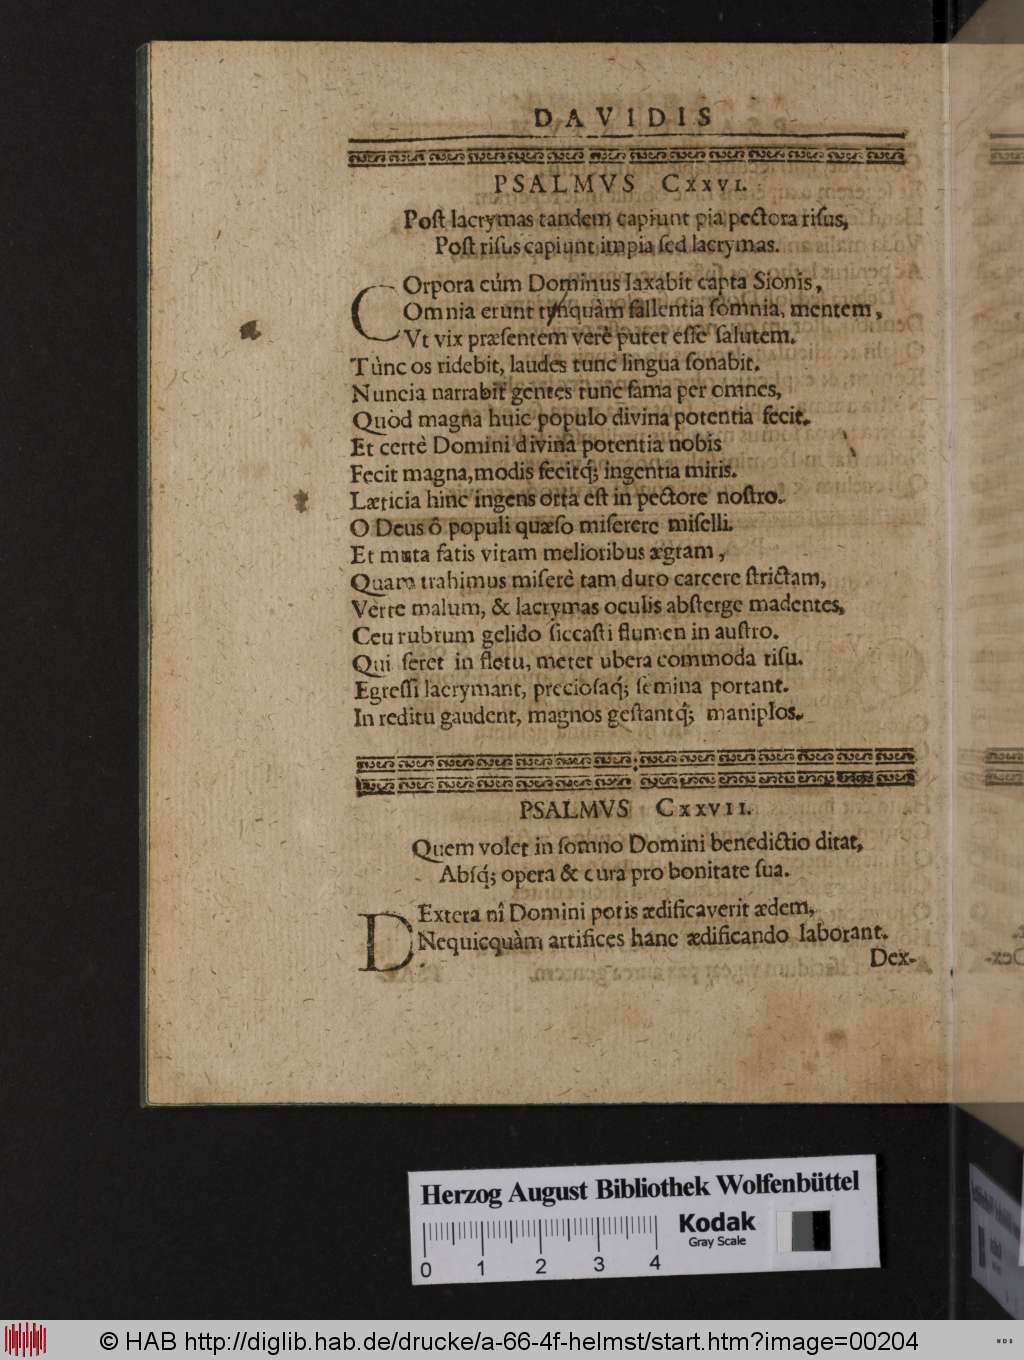 DAVIDIS
PSALMVS CXXVI.
Poſt lacrymas tandem capiunt pia pectora riſus,
Poſt riſus capiunt impia ſed lacrymas.
COrpora cúm Dominus laxabit capta Sionis,
Omnia erunt tāquàm fallentia ſomnia, mentem,
Vt vix præſentem verè putet eſſe ſalutem.
Tùnc os ridebit, laudes tunc lingua ſonabit.
Nuncia narrabit gentes tunc fama per omnes,
Quòd magna huic populo divina potentia fecit.
Et certè Domini divina potentia nobis
Fecit magna, modis fecitq́; ingentia miris.
Læticia hinc ingens orta eſt in pectore noſtro.
O Deus ô populi quæſo miſerere miſelli.
Et muta fatis vitam melioribus ægram,
Quam trahimus miſerè tam duro carcere ſtrictam,
Vèrte malum, & lacrymas oculis abſterge madentes,
Ceu rubrum gelido ſiccaſti flumen in auſtro.
Qui ſeret in fletu, metet ubera commoda riſu.
Egreſſi lacrymant, precioſaq́; ſemina portant.
In reditu gaudent, magnos geſtantq́; maniplos.
PSALMVS CXXVII.
Quem volet in ſomno Domini benedictio ditat,
Abſq́; opera & cura pro bonitate ſua.
DExtera nî Domini potis ædificaverit ædem,
Nequicquàm artifices hanc ædificando laborant.
Dex-
Herzog August Bibliothek Wolfenbüttel
Kodak
Gray Scale
0 1 2 3 4
© HAB http://diglib.hab.de/drucke/a-66-4f-helmst/start.htm?image=00204